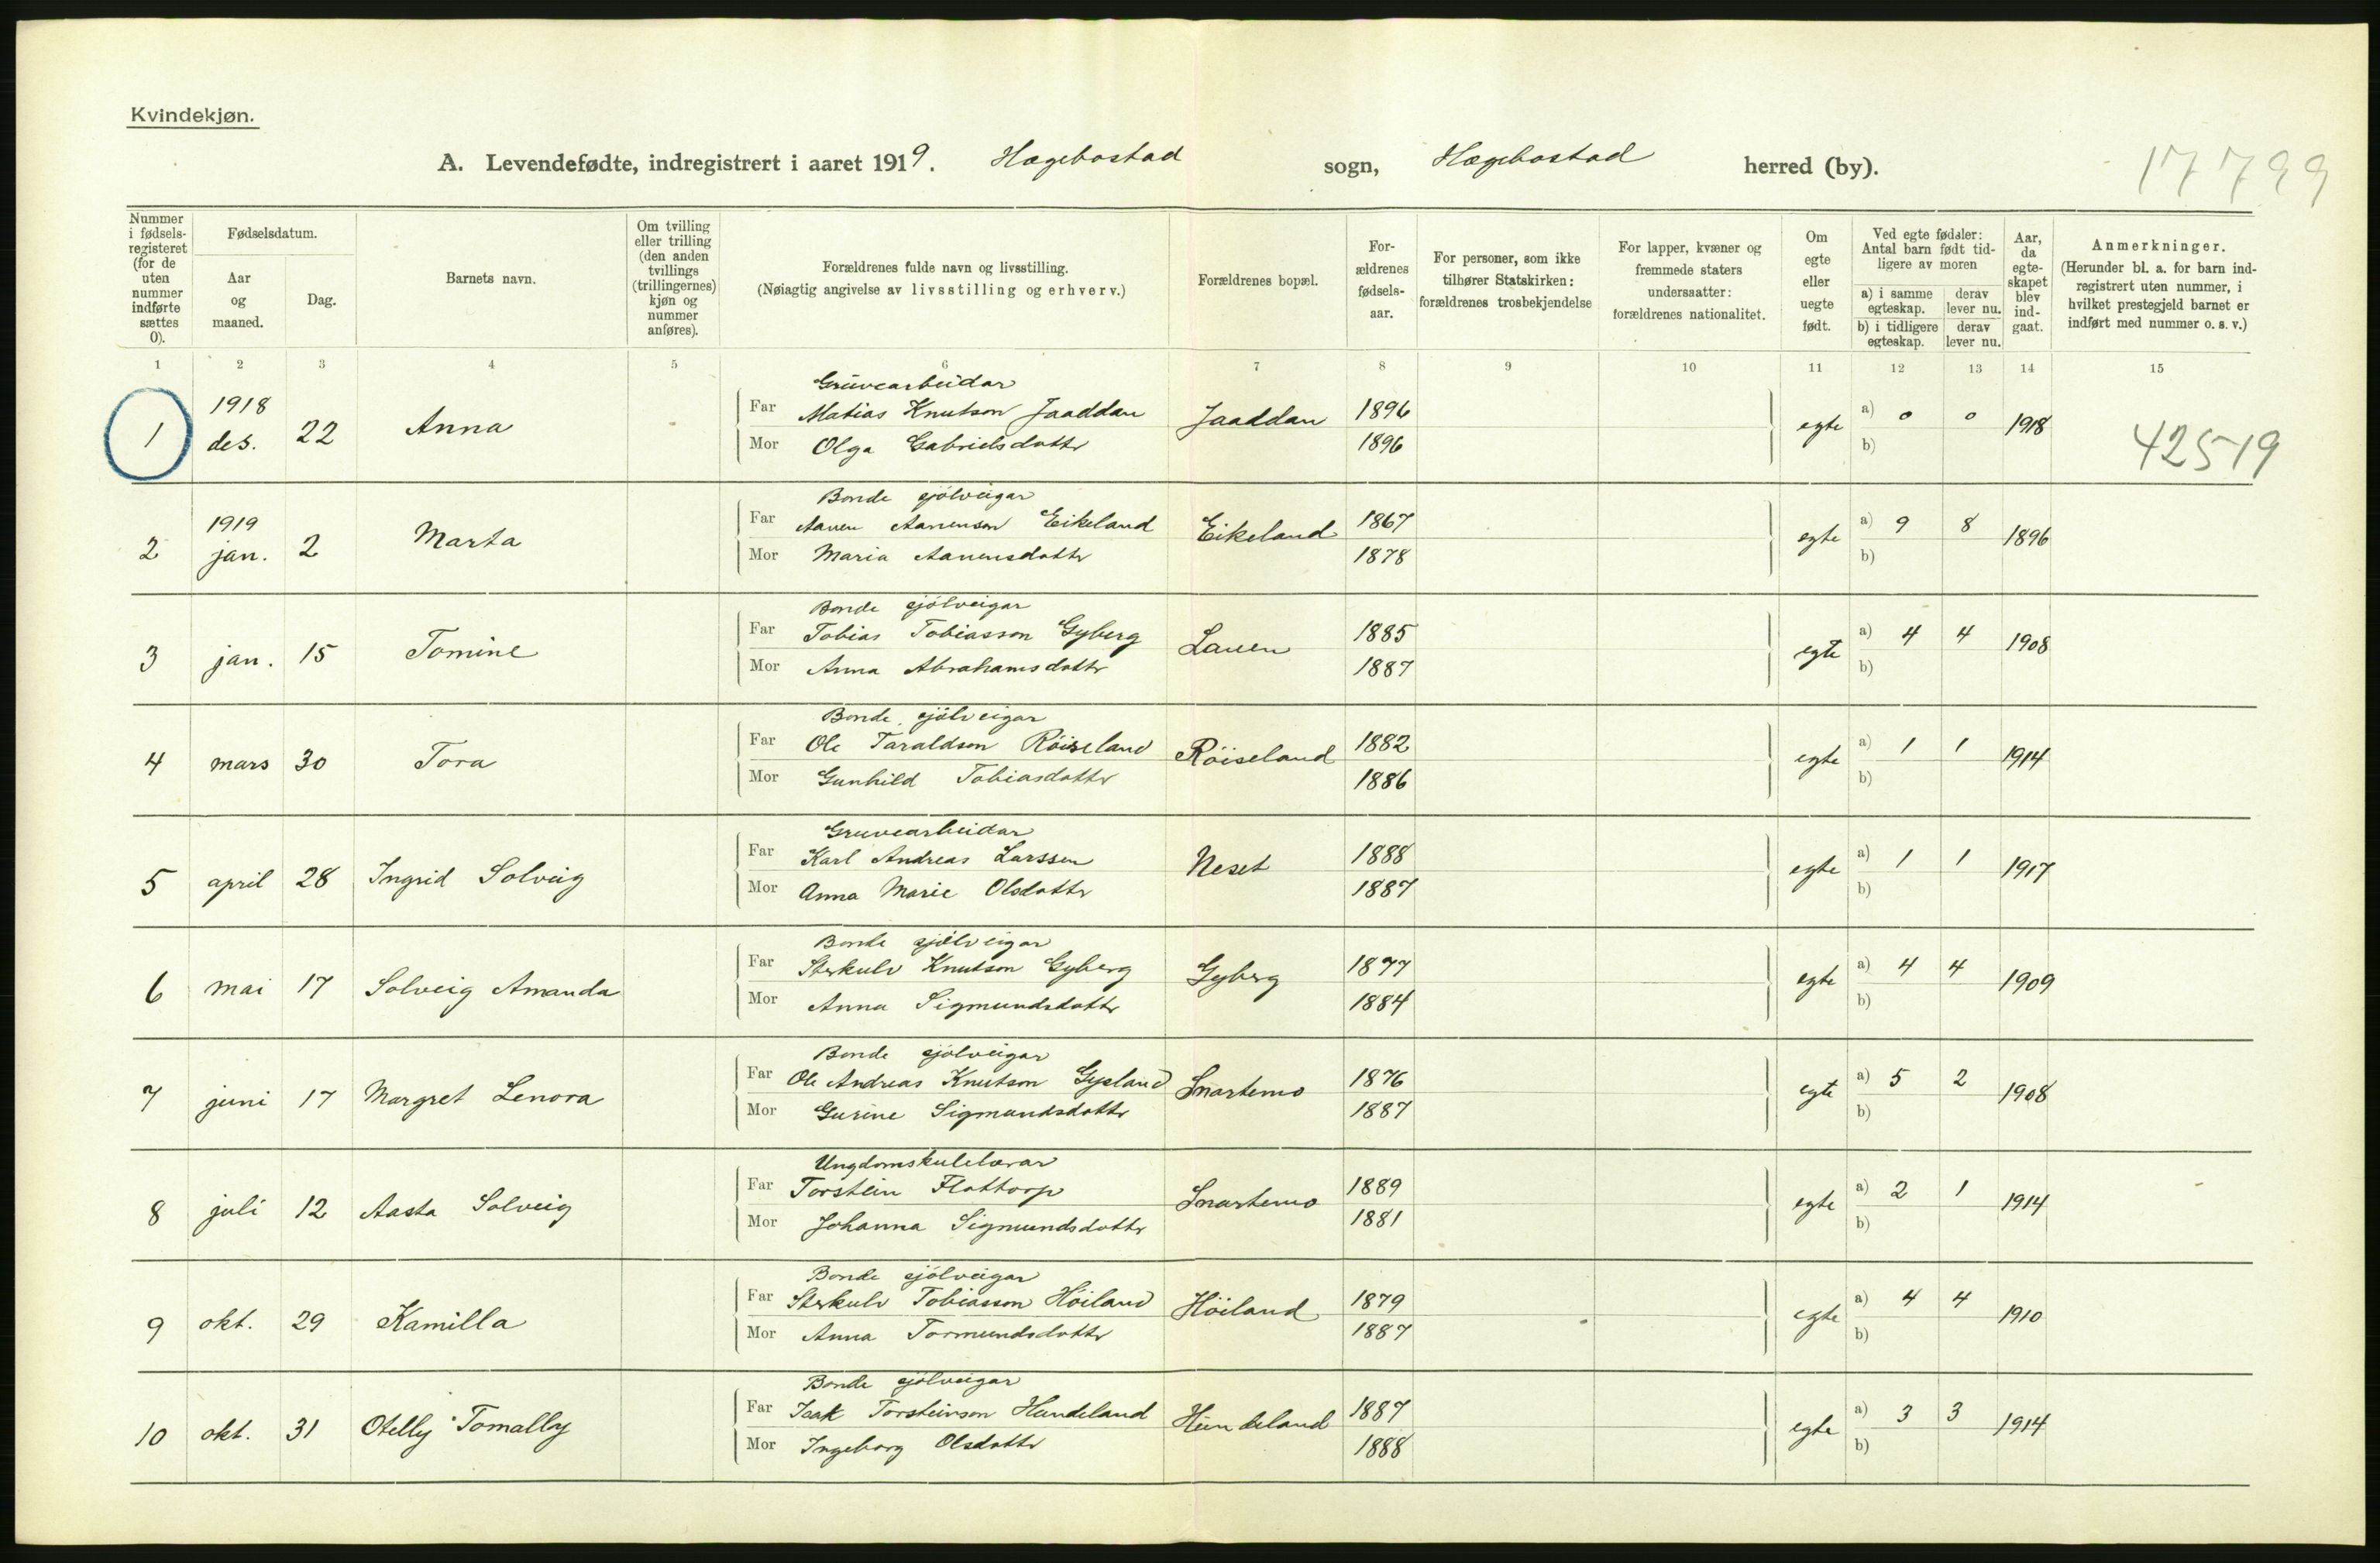 Kvindekjøn.
A. Levendefødte, indregistrert i aaret 1919. Hægebostad sogn, Hægebostad herred (by).
17799
Nummer i fødsels-registeret (for de uten nummer indførte sættes 0).
Fødselsdatum.
Aar og maaned.
Dag.
Barnets navn.
Om tvilling eller trilling (den anden tvillings (trillingernes) kjøn og nummer anføres).
Forældrenes fulde navn og livsstilling.
(Nøiagtig angivelse av livsstilling og erhverv.)
Forældrenes bopæl.
For-ældrenes fødsels-aar.
For personer, som ikke tilhører Statskirken: forældrenes trosbekjendelse
For lapper, kvæner og fremmede staters undersaatter: forældrenes nationalitet.
Om egte eller uegte født.
Ved egte fødsler: Antal barn født tid-ligere av moren
a) i samme egteskap. derav lever nu.
b) i tidligere egteskap. derav lever nu.
Aar, da egte-skapet blev ind-gaat.
Anmerkninger.
(Herunder bl. a. for barn ind-registrert uten nummer, i hvilket prestegjeld barnet er indført med nummer o. s. v.)
1 2 3 4 5 6 7 8 9 10 11 12 13 14 15
Gruvearbeidar
1 1918 des. 22 Anna Far Matias Knutson Jaaddan Jaaddan 1896 egte a) 0 0 1918
Mor Olga Gabrielsdottr 1896 b)
42519
Bonde sjølveigar
2 1919 jan. 2 Marta Far Aanen Aanenson Eikeland Eikeland 1867 egte a) 9 8 1896
Mor Maria Aanensdottr 1878 b)
Bonde sjølveigar
3 jan. 15 Tomine Far Tobias Tobiasson Gyberg Lauen 1885 egte a) 4 4 1908
Mor Anna Abrahamsdottr 1887 b)
Bonde, sjølveigar
4 mars 30 Tora Far Ole Taraldson Röiseland Röiseland 1882 egte a) 1 1 1914
Mor Gunhild Tobiasdottr 1886 b)
Gruvearbeidar
5 april 28 Ingrid Solveig Far Karl Andreas Larssen Neset 1888 egte a) 1 1 1917
Mor Anna Marie Olsdottr 1887 b)
Bonde sjølveigar
6 mai 17 Solveig Amanda Far Sterkulv Knutson Gyberg Gyberg 1877 egte a) 4 4 1909
Mor Anna Sigmundsdottr 1884 b)
Bonde sjølveigar
7 juni 17 Margret Lenora Far Ole Andreas Knutson Gysland Snartemo 1876 egte a) 5 2 1908
Mor Gurine Sigmundsdottr 1887 b)
Ungdomskulelærar
8 juli 12 Aasta Solveig Far Torstein Flottorp Snartemo 1889 egte a) 2 1 1914
Mor Johanna Sigmundsdottr 1881 b)
Bonde sjølveigar
9 okt. 29 Kamilla Far Sterkulv Tobiasson Höiland Höiland 1879 egte a) 4 4 1910
Mor Anna Tormundsdottr 1887 b)
Bonde sjølveigar
10 okt. 31 Otelly Tomally Far Isak Torsteinson Hundeland Hundeland 1887 egte a) 3 3 1914
Mor Ingeborg Olsdottr 1888 b)